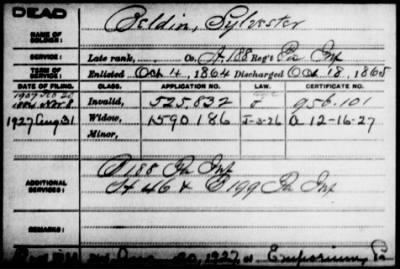 DEAD
Beldin, Sylvester
NAME OF SOLDIER:
SERVICE: Late rank, Co. A, 188 Reg't Pa Inf
TERM OF SERVICE: Enlisted Oct 4, 1864 Discharged Oct 18, 1865
DATE OF FILING. CLASS. APPLICATION NO. LAW. CERTIFICATE NO.
1884 Nov. 8 Invalid, 525,832 956,101
1927 Aug 31 Widow, 1590,186 A 12-16-27
Minor,
ADDITIONAL SERVICES:
188 Pa Inf
H 46 & 199 Pa Inf
REMARKS:
20, 1927 Emporium, Pa